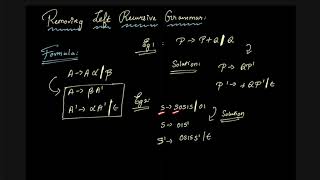 Removing Left Recursive Grammar:
Formula:
A → A α / β
A → β A'
A' → α A' / ε
Eg1: P → P + Q / Q
Solution: P → Q P'
P' → + Q P' / ε
Eg2: S → S0S1S / 01
Solution
S → 01S'
S' → 0S1SS' / ε